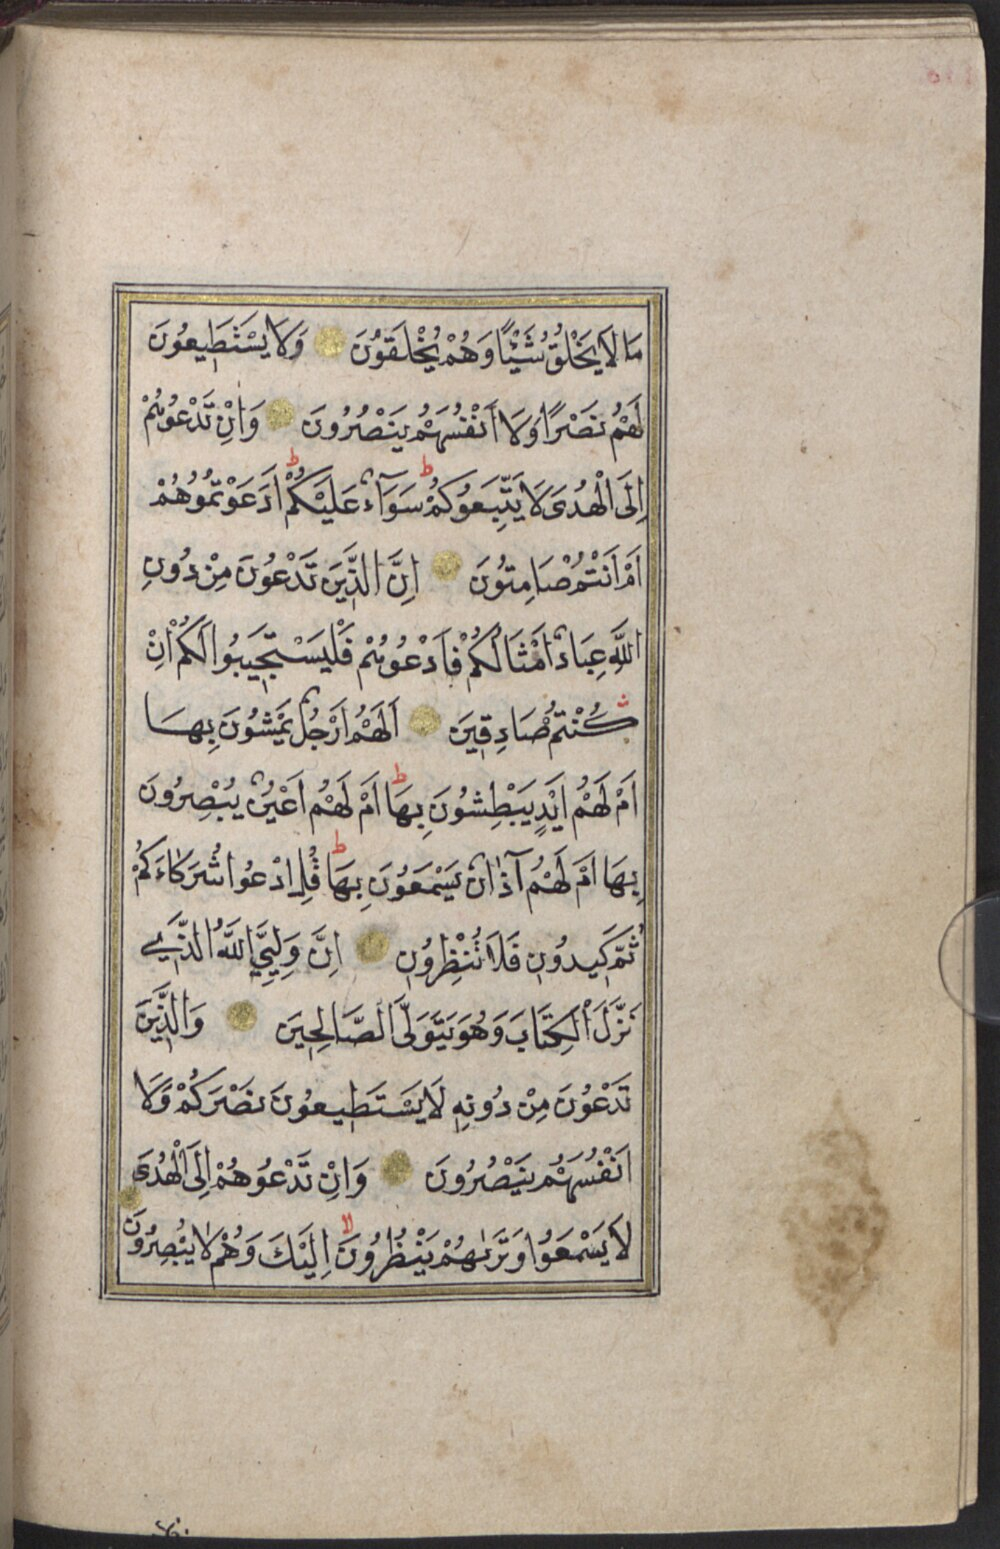 مَا لَا يَخْلُقُ شَيْئًا وَهُمْ يُخْلَقُونَ وَلَا يَسْتَطِيعُونَ
لَهُمْ نَصْرًا وَلَا أَنْفُسَهُمْ يَنْصُرُونَ وَإِنْ تَدْعُوهُمْ
إِلَى الْهُدَى لَا يَتَّبِعُوكُمْ ط سَوَآءٌ عَلَيْكُمْ ط أَدَعَوْتُمُوهُمْ
أَمْ أَنْتُمْ صَامِتُونَ إِنَّ الَّذِينَ تَدْعُونَ مِنْ دُونِ
اللَّهِ عِبَادٌ أَمْثَالُكُمْ فَادْعُوهُمْ فَلْيَسْتَجِيبُوا لَكُمْ إِنْ
كُنْتُمْ صَادِقِينَ أَلَهُمْ أَرْجُلٌ يَمْشُونَ بِهَا
أَمْ لَهُمْ أَيْدٍ يَبْطِشُونَ بِهَا ط أَمْ لَهُمْ أَعْيُنٌ يُبْصِرُونَ
بِهَا أَمْ لَهُمْ آذَانٌ يَسْمَعُونَ بِهَا ط قُلِ ادْعُوا شُرَكَاءَكُمْ
ثُمَّ كِيدُونِ فَلَا تُنْظِرُونِ إِنَّ وَلِيِّيَ اللَّهُ الَّذِي
نَزَّلَ الْكِتَابَ وَهُوَ يَتَوَلَّى الصَّالِحِينَ وَالَّذِينَ
تَدْعُونَ مِنْ دُونِهِ لَا يَسْتَطِيعُونَ نَصْرَكُمْ وَلَا
أَنْفُسَهُمْ يَنْصُرُونَ وَإِنْ تَدْعُوهُمْ إِلَى الْهُدَى
لَا يَسْمَعُوا وَتَرٰىهُمْ يَنْظُرُونَ إِلَيْكَ وَهُمْ لَا يُبْصِرُونَ